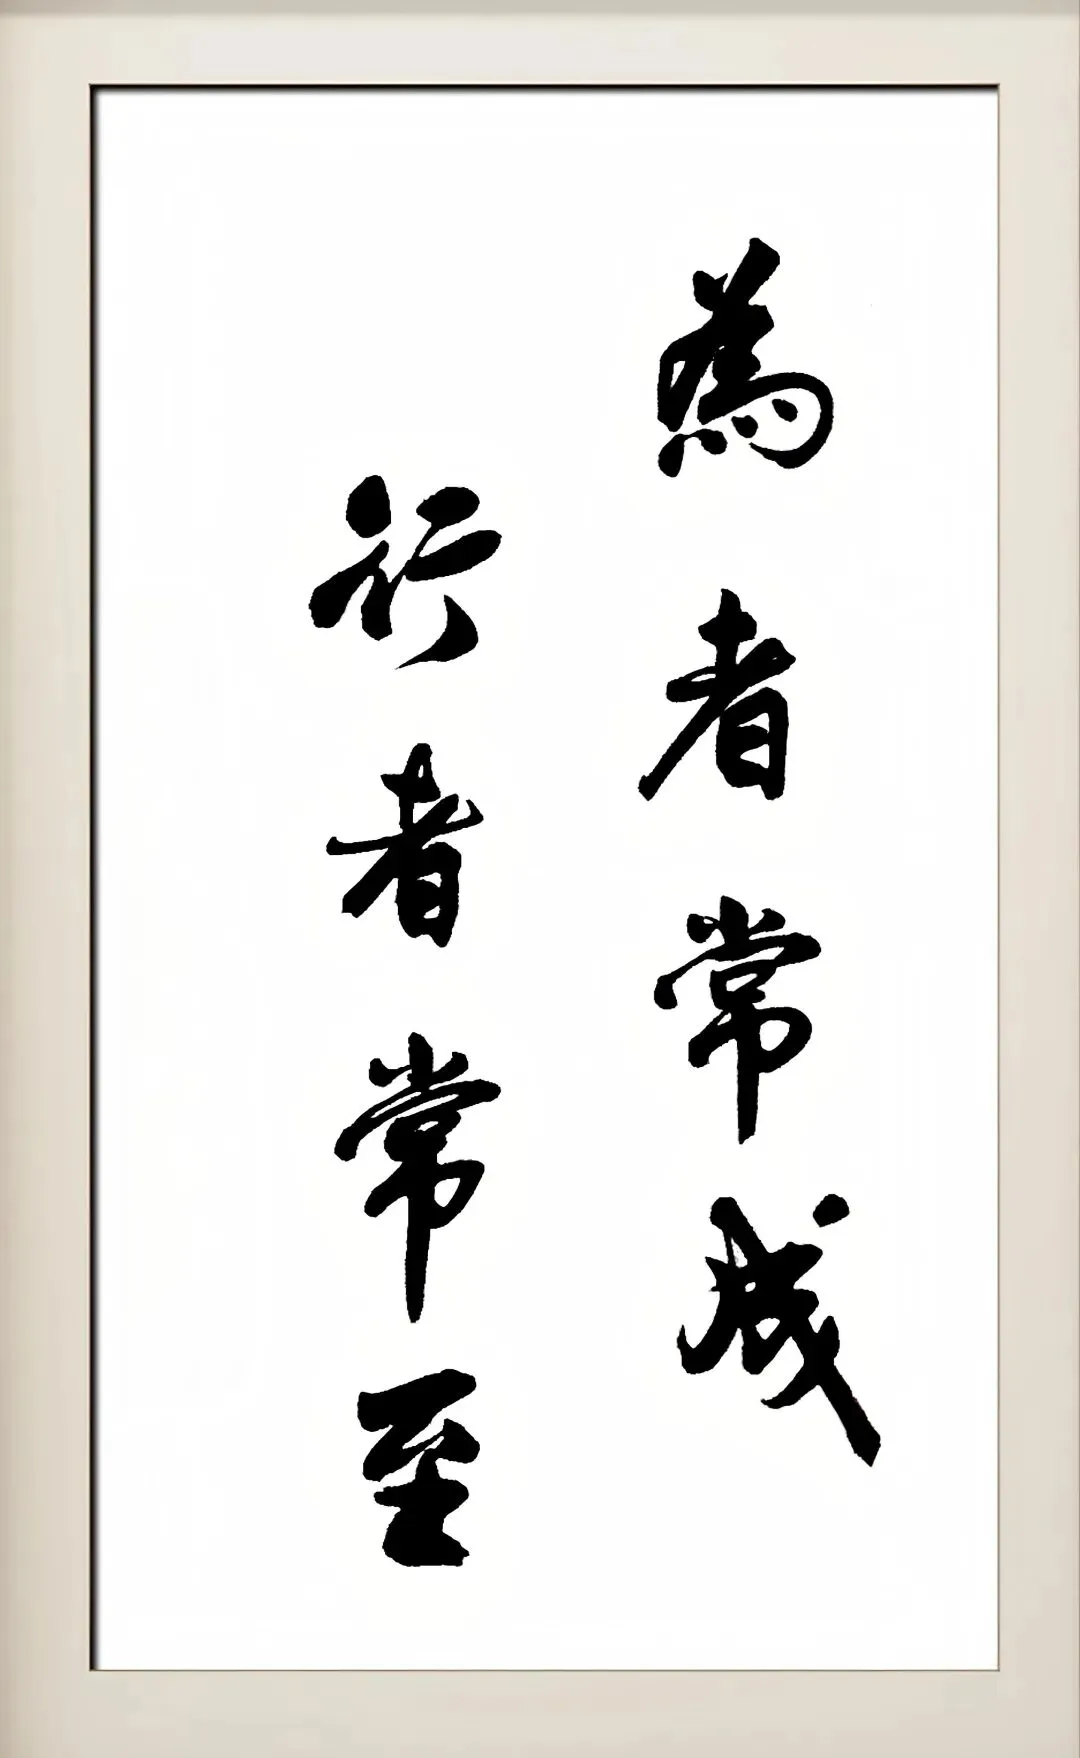 為者常成
行者常至